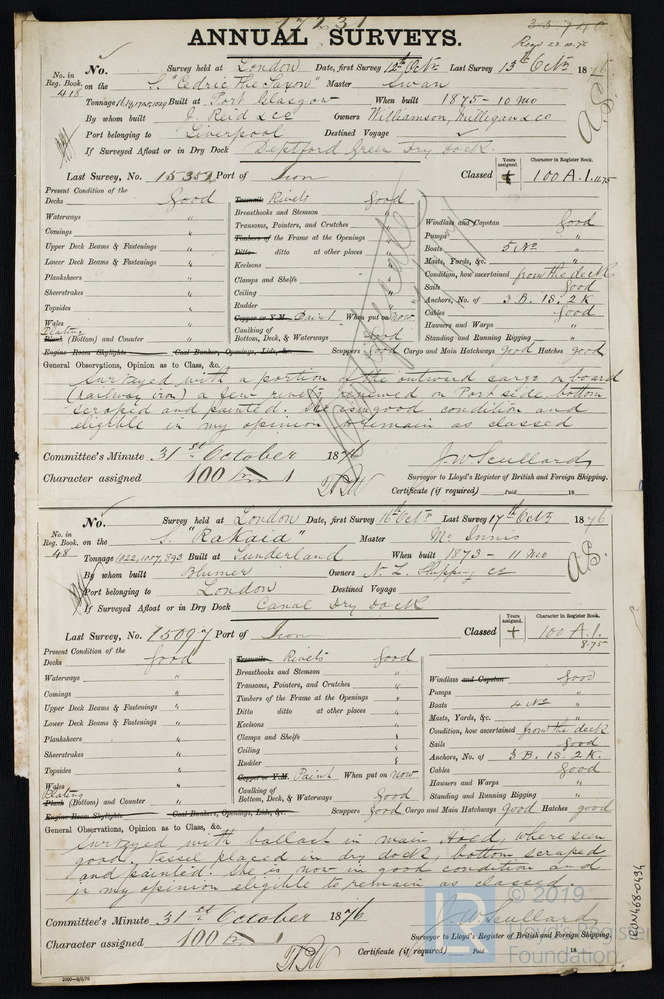 17231
33740
ANNUAL SURVEYS.
Recd 23.10.76
No. Survey held at London Date, first Survey 12th Octr Last Survey 13th Octr 1876
No. in Reg. Book. 418 on the S. "Cedric the Saxon" Master Swan
Tonnage 1619,1705,1029 Built at Port Glasgow When built 1875 - 10 mo
By whom built J. Reid & Co Owners Williamson, Milligan & Co
Port belonging to Liverpool Destined Voyage
If Surveyed Afloat or in Dry Dock Deptford Green Dry Dock.
A.S.
Last Survey, No. 15352 Port of Iron Classed Years assigned. + Character in Register Book. 100 A.1. 11.75
Present Condition of the
Decks Good
Waterways "
Comings "
Upper Deck Beams & Fastenings "
Lower Deck Beams & Fastenings "
Planksheers "
Sheerstrakes "
Topsides "
Wales "
Plating
Plank (Bottom) and Counter "
Engine Room Skylights Coal Bunker, Openings, Lids, &c.
Treenails Rivets Good
Breasthooks and Stemson "
Transoms, Pointers, and Crutches "
Timbers of the Frame at the Openings "
Ditto ditto at other places "
Keelsons "
Clamps and Shelfs "
Ceiling "
Rudder "
Copper or Y.M. Paint When put on Now
Caulking of Bottom, Deck, & Waterways Good
Scuppers Good Cargo and Main Hatchways Good Hatches Good
Windlass and Capstan Good
Pumps "
Boats 5 No "
Masts, Yards, &c. "
Condition, how ascertained from the deck
Sails Good
Anchors, No. of 3 B. 1 S. 2 K.
Cables Good
Hawsers and Warps "
Standing and Running Rigging "
General Observations, Opinion as to Class, &c.
Surveyed with a portion of the outward cargo on board
(railway iron) a few rivets renewed on Port side, bottom
scraped and painted. She is in good condition and
eligible in my opinion to remain as classed
Committee's Minute 31st October 1876
Character assigned 100 A 1
J. W. Scullard
Surveyor to Lloyd's Register of British and Foreign Shipping.
Certificate (if required) Paid 18
No. Survey held at London Date, first Survey 16th Octr Last Survey 17th Octr 1876
No. in Reg. Book. 48 on the S. "Rakaia" Master Mc Innis
Tonnage 1022,1007,893 Built at Sunderland When built 1873 - 11 mo
By whom built Blumer Owners N. Z. Shipping Co
Port belonging to London Destined Voyage
If Surveyed Afloat or in Dry Dock Canal Dry Dock
A.S.
Last Survey, No. 15097 Port of Iron Classed Years assigned. + Character in Register Book. 100 A.1. 8.75
Present Condition of the
Decks Good
Waterways "
Comings "
Upper Deck Beams & Fastenings "
Lower Deck Beams & Fastenings "
Planksheers "
Sheerstrakes "
Topsides "
Wales "
Plating
Plank (Bottom) and Counter "
Engine Room Skylights Coal Bunkers, Openings, Lids, &c.
Treenails Rivets Good
Breasthooks and Stemson "
Transoms, Pointers, and Crutches "
Timbers of the Frame at the Openings "
Ditto ditto at other places "
Keelsons "
Clamps and Shelfs "
Ceiling "
Rudder "
Copper or Y.M. Paint When put on Now
Caulking of Bottom, Deck, & Waterways Good
Scuppers Good Cargo and Main Hatchways Good Hatches Good
Windlass and Capstan Good
Pumps "
Boats 4 No "
Masts, Yards, &c. "
Condition, how ascertained from the deck
Sails Good
Anchors, No. of 3 B. 1 S. 2 K.
Cables Good
Hawsers and Warps "
Standing and Running Rigging "
General Observations, Opinion as to Class, &c.
Surveyed with ballast in main Hold, where seen
good. Vessel placed in dry dock, bottom scraped
and painted. She is now in good condition and
in my opinion eligible to remain as classed
Committee's Minute 31st October 1876
Character assigned 100 A 1
J. W. Scullard
Surveyor to Lloyd's Register of British and Foreign Shipping.
Certificate (if required) Paid 18
IRON468-0494
© 2019
Lloyd's Register
Foundation